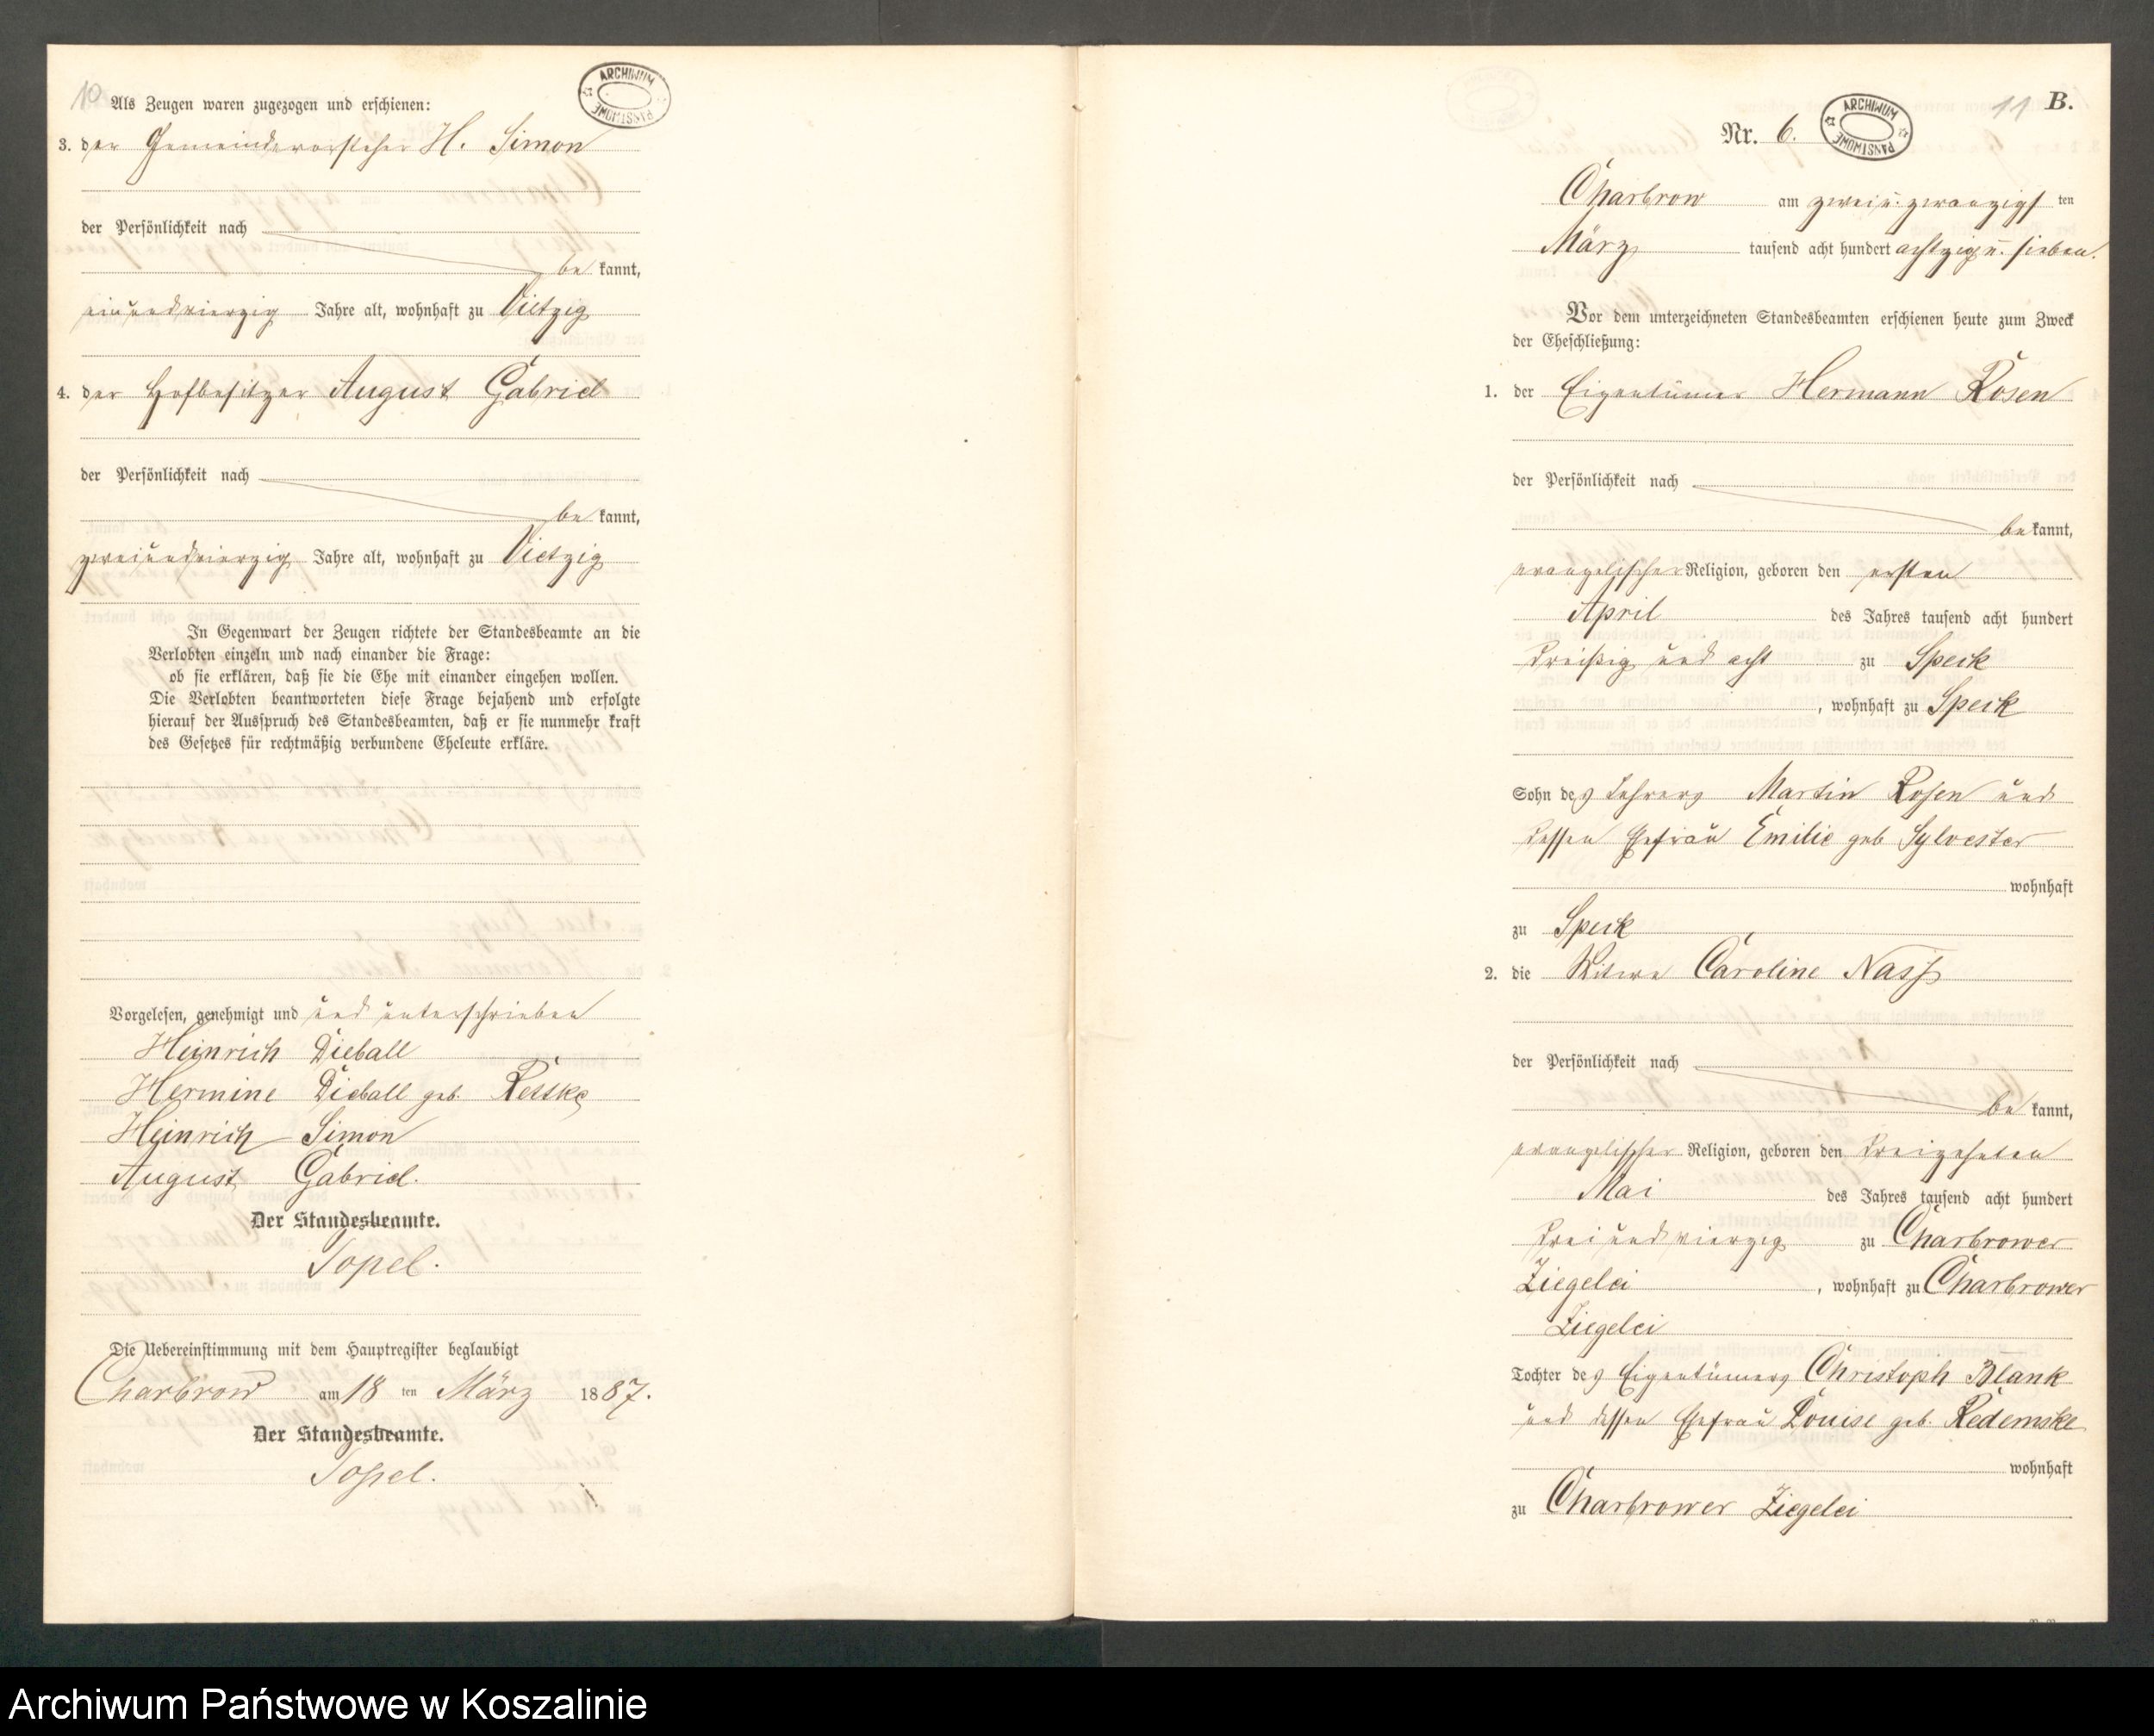 10
Als Zeugen waren zugezogen und erschienen:
ARCHIWUM PAŃSTWOWE
3. der Gemeindevorsteher H. Simon
der Persönlichkeit nach
be kannt,
einundvierzig Jahre alt, wohnhaft zu Vietzig
4. der Hofbesitzer August Gabriel
der Persönlichkeit nach
be kannt,
zweiundvierzig Jahre alt, wohnhaft zu Vietzig
In Gegenwart der Zeugen richtete der Standesbeamte an die
Verlobten einzeln und nach einander die Frage:
ob sie erklären, daß sie die Ehe mit einander eingehen wollen.
Die Verlobten beantworteten diese Frage bejahend und erfolgte
hierauf der Ausspruch des Standesbeamten, daß er sie nunmehr kraft
des Gesetzes für rechtmäßig verbundene Eheleute erkläre.
Vorgelesen, genehmigt und und unterschrieben
Heinrich Dieball
Hermine Dieball geb. Retzke
Heinrich Simon
August Gabriel.
Der Standesbeamte.
Topel.
Die Uebereinstimmung mit dem Hauptregister beglaubigt
Charbrow am 18 ten März 1887.
Der Standesbeamte.
Topel.
11 B.
Nr. 6.
ARCHIWUM PAŃSTWOWE
Charbrow am zwei u. zwanzigs ten
März tausend acht hundert achtzig u. sieben.
Vor dem unterzeichneten Standesbeamten erschienen heute zum Zweck
der Eheschließung:
1. der Eigentümer Hermann Rosen
der Persönlichkeit nach
be kannt,
evangelischer Religion, geboren den ersten
April des Jahres tausend acht hundert
dreißig und acht zu Speck
, wohnhaft zu Speck
Sohn des Lehrers Martin Rosen und
dessen Ehefrau Emilie geb Sylvester
wohnhaft
zu Speck
2. die Witwe Caroline Nass
der Persönlichkeit nach
be kannt,
evangelischer Religion, geboren den dreizehnten
Mai des Jahres tausend acht hundert
drei und vierzig zu Charbrower
Ziegelei , wohnhaft zu Charbrower
Ziegelei
Tochter des Eigentümers Christoph Blank
und dessen Ehefrau Louise geb. Redemske
wohnhaft
zu Charbrower Ziegelei
Archiwum Państwowe w Koszalinie